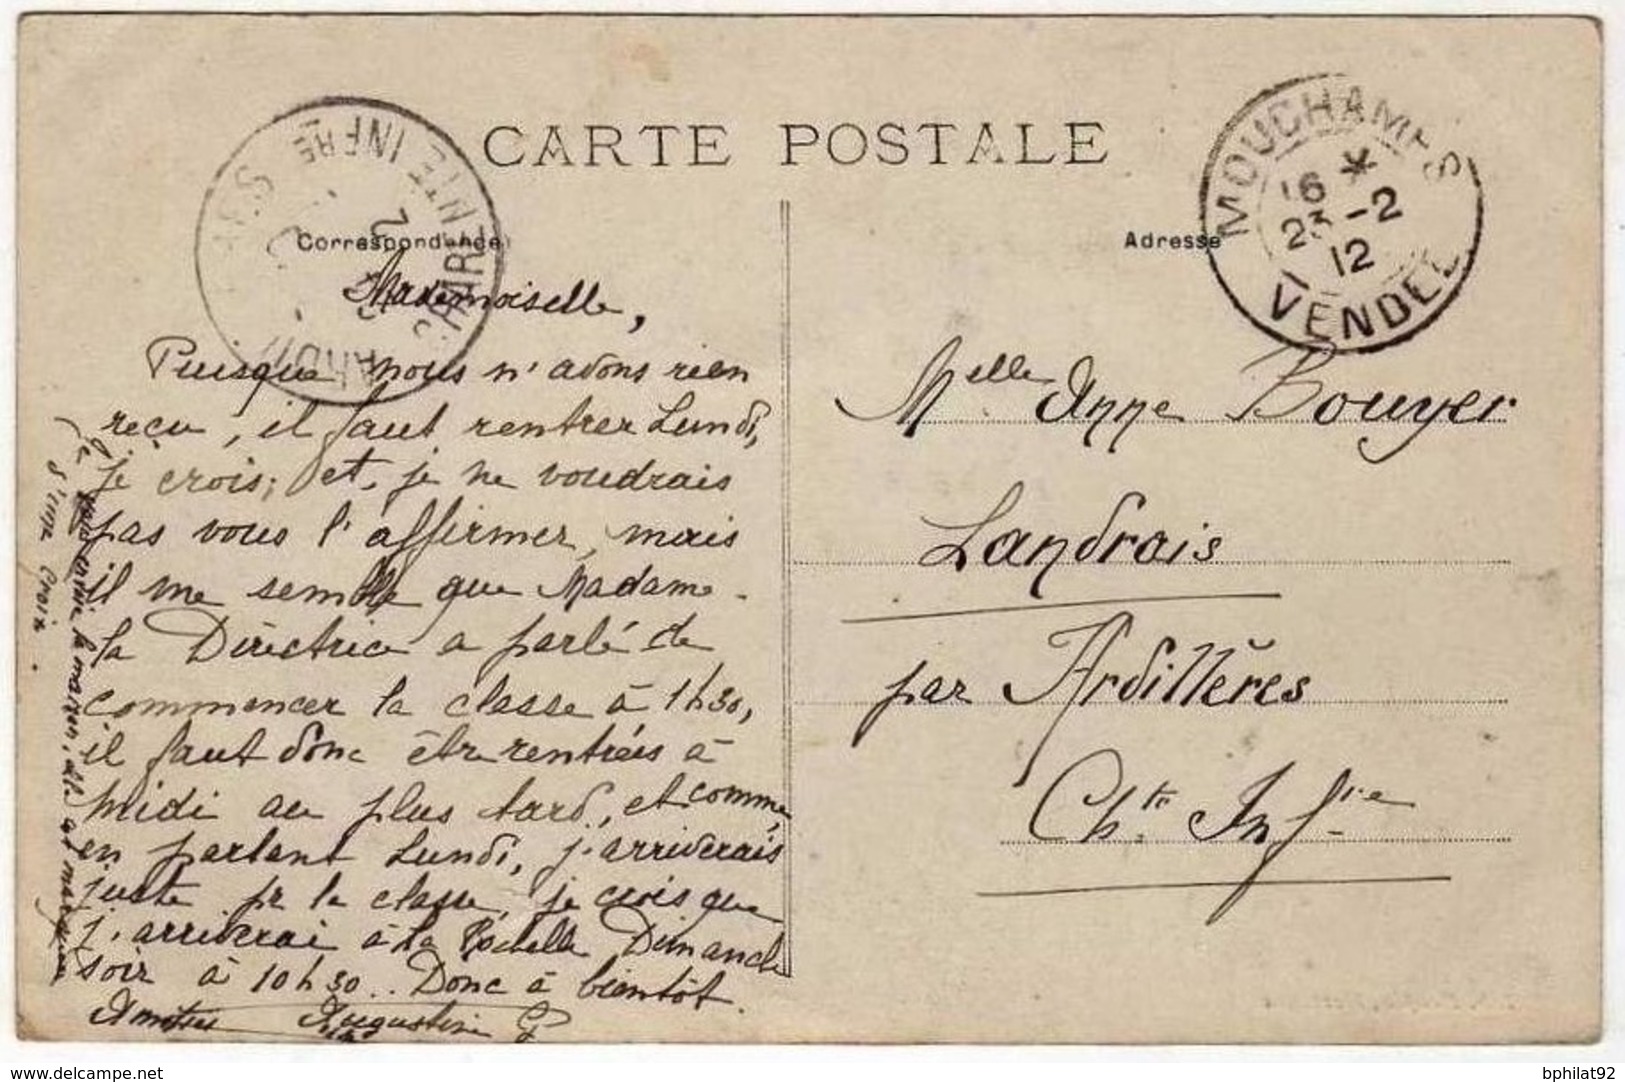 CARTE POSTALE
Correspondance
Adresse
MOUCHAMPS
16 *
23 - 2
12
VENDEE
INFRE
Mademoiselle,
Puisque nous n'avons rien
reçu, il faut rentrer Lundi,
je crois; et, je ne voudrais
pas vous l'affirmer, mais
il me semble que Madame
la Directrice a parlé de
commencer la classe à 1h30,
il faut donc être rentrées à
midi au plus tard, et comme,
en partant Lundi, j'arriverais
juste pr la classe, je crois que
j'arriverai à La Rochelle Dimanche
soir à 10h30.. Donc à bientôt.
Amitiés Augustine G
Je vous envie la maison, elle est marquée
d'une croix.
Melle Anne Bouyer
Landrais
par Ardillères
Chte Infre
delcampe.net
bphilat92